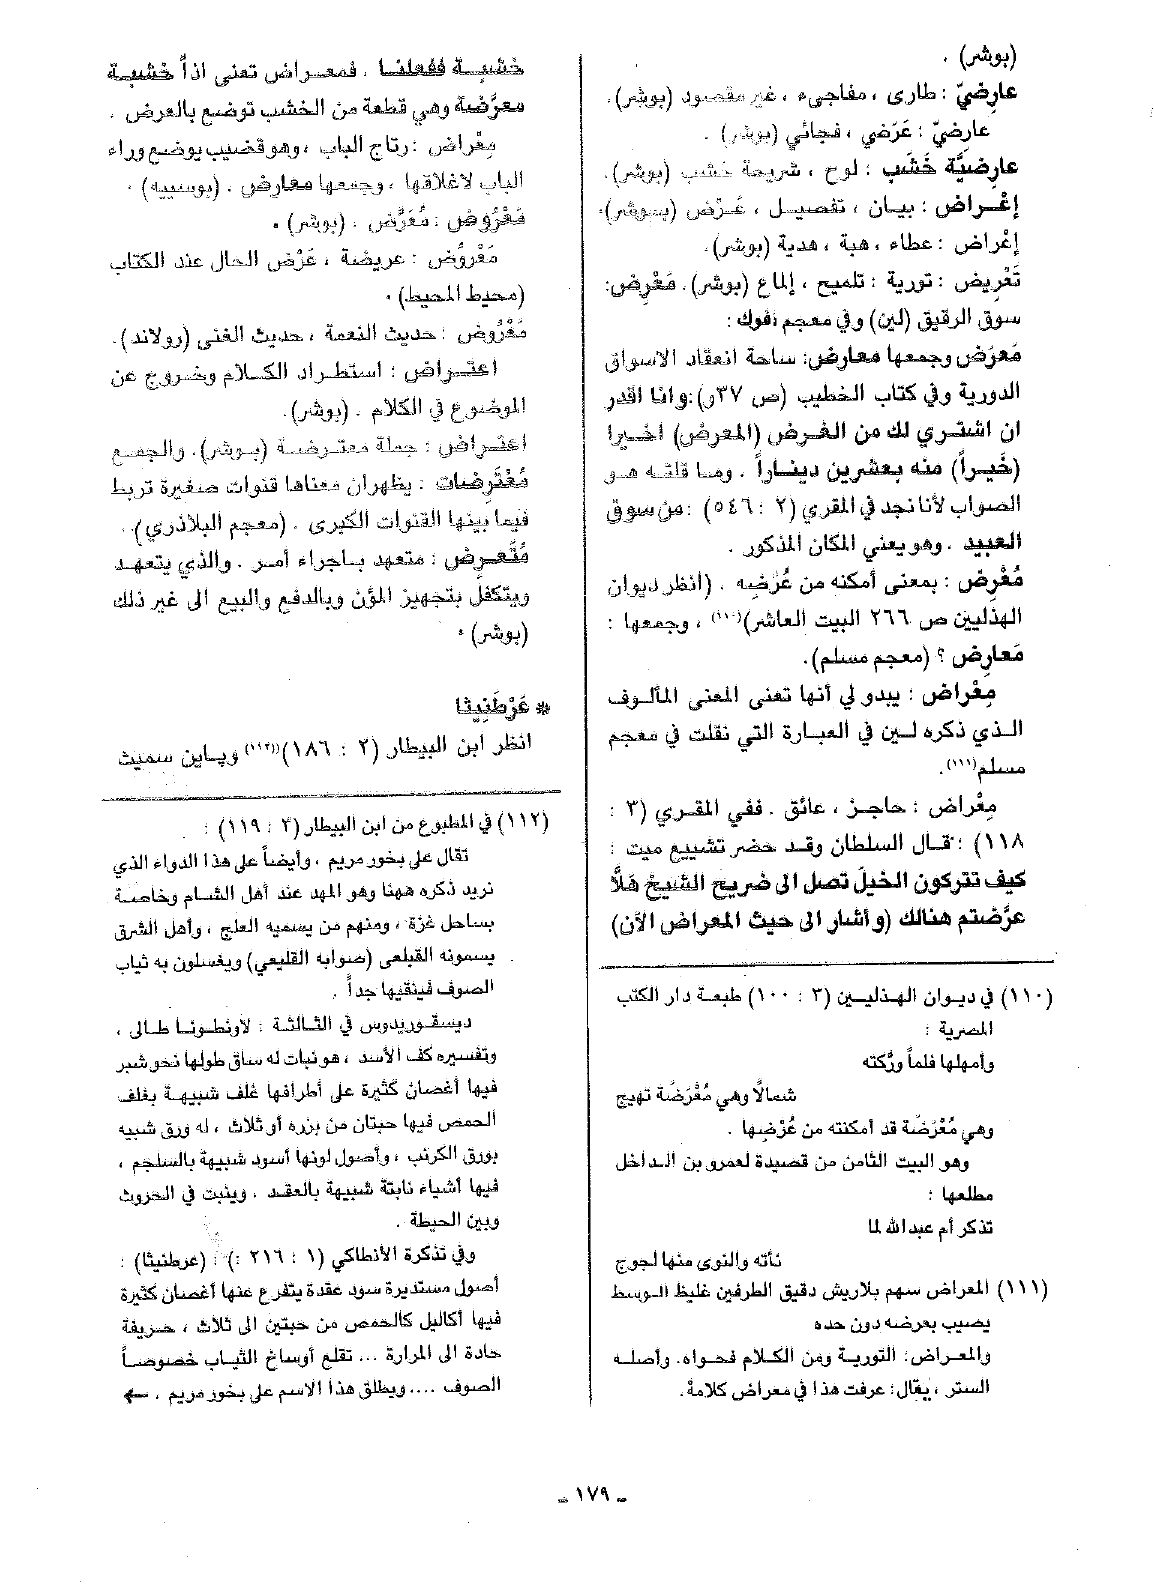 (بوشر) .
عارِضيّ : طارى ، مفاجىء ، غير مقصود (بوشر).
عارِضيّ : عَرَضي ، فجائي (بوشر) .
عارِضيَّة خَشَب : لوح ، شريحة خشب (بوشر).
إعْراض : بيان ، تفصيل ، عَرْض (بوشر).
إعْراض : عطاء ، هبة ، هدية (بوشر).
تَعْرِيض : تورية : تلميح ، إلماع (بوشر). مَعْرِض:
سوق الرقيق (لين) وفي معجم فوك :
مَعرَض وجمعها معارض: ساحة انعقاد الاسواق
الدورية وفي كتاب الخطيب (ص ٣٧و):وانا اقدر
ان اشتري لك من الغرض (المعرض) اخيرا
(خَيراً) منه بعشرين ديناراً . وما قلته هو
الصواب لأنا نجد في المقري (٢ : ٥٤٦) :من سوق
العبيد . وهو يعني المكان المذكور .
مُعْرِض : بمعنى أمكنه من عُرْضِه . (انظر ديوان
الهذليين ص ٢٦٦ البيت العاشر)(١١٠) ، وجمعها :
مَعارِض ؟ (معجم مسلم).
مِعْراض : يبدو لي أنها تعنى المعنى المألوف
الذي ذكره لين في العبارة التي نقلت في معجم
مسلم(١١١).
مِعْراض : حاجز ، عائق . ففي المقري (٣ :
١١٨) : قال السلطان وقد حضر تشييع ميت :
كيف تتركون الخيلَ تصل الى ضريح الشيخ هَلاَّ
عرَّضتم هنالك (وأشار الى حيث المعراض الآن)
(١١٠) في ديوان الهذليين (٣ : ١٠٠) طبعة دار الكتب
المصرية :
وأمهلها فلماً ورَّكته
شمالًا وهي مُعْرَضَة تهيج
وهي مُعْرَضَة قد أمكنته من عُرْضِها .
وهو البيت الثامن من قصيدة لعمرو بن الداخل
مطلعها :
تذكر أم عبدالله لما
نأته والنوى منها لجوج
(١١١) المعراض سهم بلاريش دقيق الطرفين غليظ الوسط
يصيب بعرضه دون حده
والمعراض: التورية ومن الكلام فحواه. وأصله
الستر ، يقال: عرفت هذا في معراض كلامهْ.
خشبة ففعلنا . فمعراض تعنى اذاً خَشبة
معرَّضة وهي قطعة من الخشب توضع بالعرض .
مِعْراض : رتاج الباب ، وهو قضيب يوضع وراء
الباب لاغلاقها ، وجمعها معارض . (بوسييه) .
مَعْرُوض : مُعَرَّض . (بوشر) .
مَعْرُوض : عريضة ، عَرْض الحال عند الكتاب
(محيط المحيط) .
مَعْرُوض : حديث النعمة ، حديث الغنى (رولاند).
اعتِراض : استطراد الكلام وخروج عن
الموضوع في الكلام . (بوشر).
اعتِراض : جملة معترضة (بوشر). والجمع
مُعْتَرِضات : يظهران معناها قنوات صغيرة تربط
فيما بينها القنوات الكبرى . (معجم البلاذري) .
مُتَعرِض : متعهد باجراء أمر . والذي يتعهد
ويتكفل بتجهيز المؤن وبالدفع والبيع الى غير ذلك
(بوشر) .
* عَرْطَنِيثا
انظر ابن البيطار (٢ : ١٨٦)(١١٢) وپاين سميث
(١١٢) في المطبوع من ابن البيطار (٣ : ١١٩) :
تقال على بخور مريم ، وأيضاً على هذا الدواء الذي
نريد ذكره ههنا وهو المهد عند أهل الشام وخاصة
بساحل غزة ، ومنهم من يسميه العلج ، وأهل الشرق
يسمونه القبلعى (صوابه القليعي) ويغسلون به ثياب
الصوف فينقيها جداً .
ديسقوريدوس في الثالثة : لاونطوبنا طالى ،
وتفسيره كف الأسد ، هو نبات له ساق طولها نحو شبر
فيها أغصان كثيرة على أطرافها غلف شبيهة بغلف
الحمص فيها حبتان من بزره أو ثلاث ، له ورق شبيه
بورق الكرنب ، وأصول لونها أسود شبيهة بالسلجم ،
فيها أشياء نابتة شبيهة بالعقد . وينبت في الحروث
وبين الحيطة .
وفي تذكرة الأنطاكي (١ : ٢١٦ :) : (عرطنيثا) :
أصول مستديرة سود عقدة يتفرع عنها أغصان كثيرة
فيها أكاليل كالحمص من حبتين الى ثلاث ، حريفة
حادة الى المرارة ... تقلع أوساخ الثياب خصوصاً
الصوف .... ويطلق هذا الاسم على بخور مريم ، ←
ـ ١٧٩ ـ